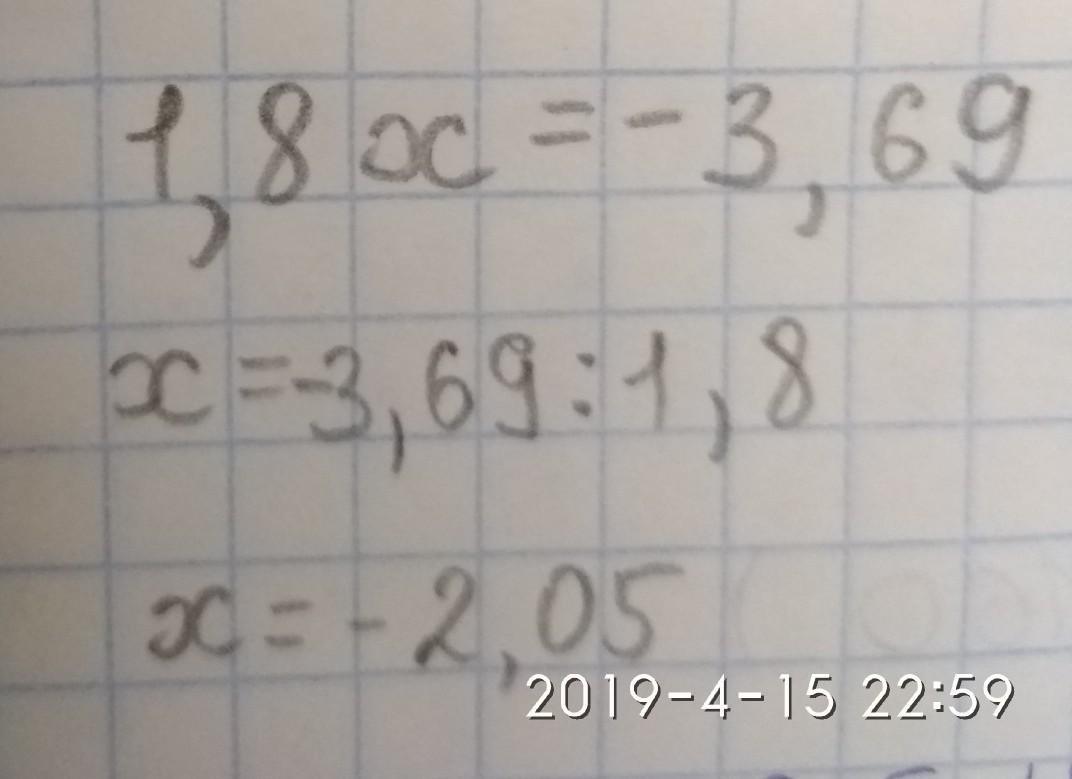 1,8x = -3,69
x = -3,69 : 1,8
x = -2,05
2019-4-15 22:59